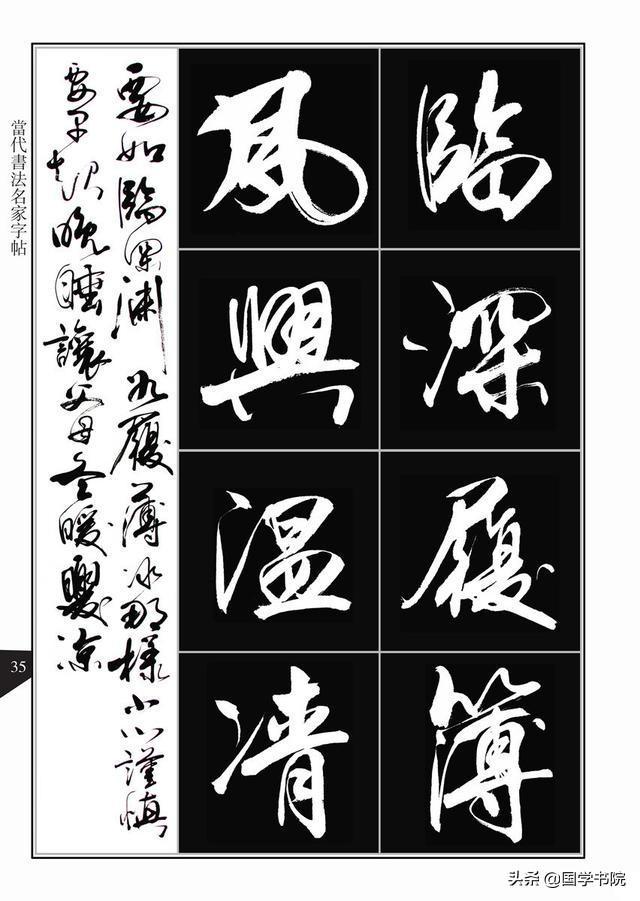 臨深履簿
夙興温凊
要如臨深淵如履薄冰那樣小心謹慎
要早起晚睡讓父母冬暖夏凉
當代書法名家字帖
35
头条 @国学书院